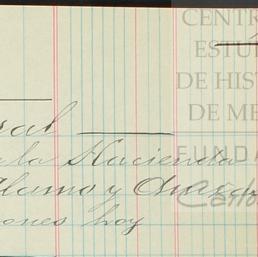 CENTR
ESTU
DE HIST
DE ME
FUND
Carlos
ral
la Hacienda
Alamo y
iones hoy